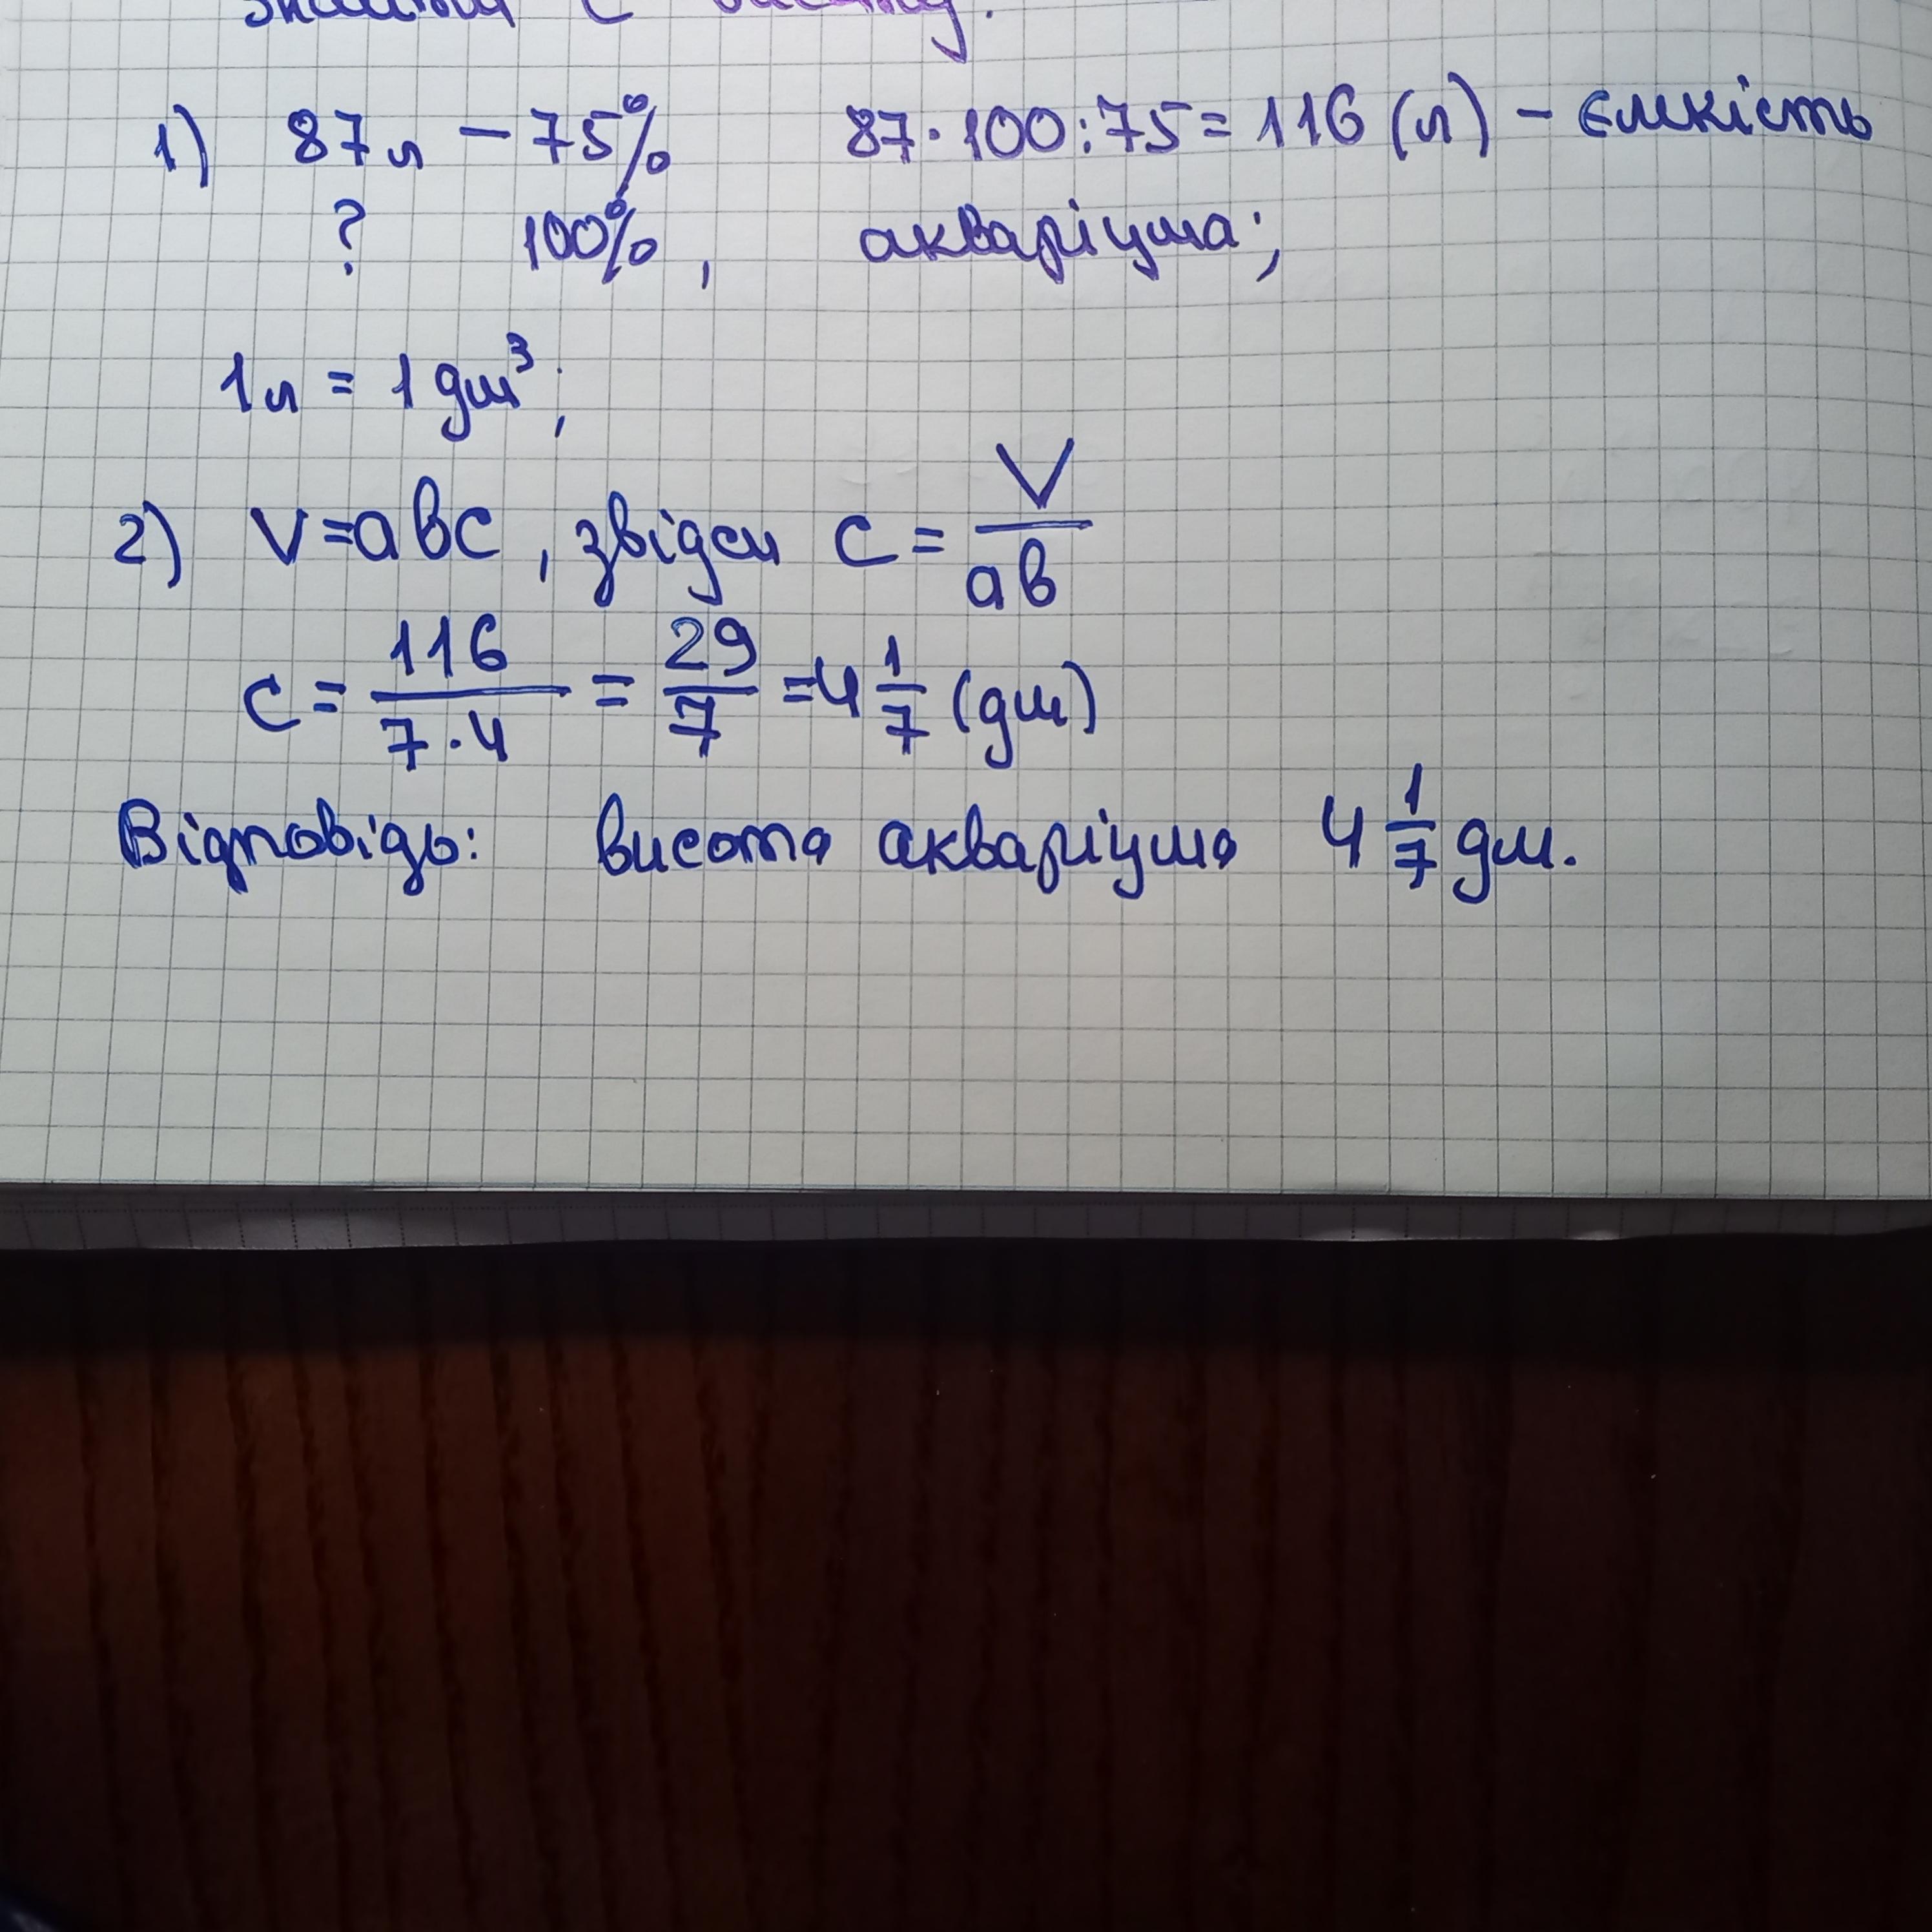 1) 87л – 75% 87·100:75=116 (л) – ємкість
? 100%, акваріума;
1л = 1 дм³;
2) V=abc, звідси c = V/ab
c = 116/(7·4) = 29/7 = 4 1/7 (дм)
Відповідь: висота акваріума 4 1/7 дм.